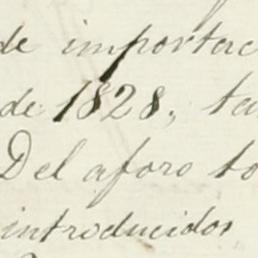 de importac
de 1828, ta
Del aforo to
introducidos